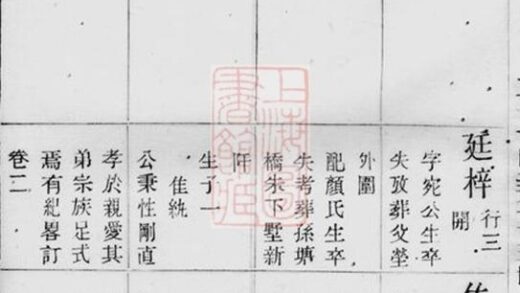 廷梓 行三
開
字宛公生卒
失攷葬父塋
外圍
配顏氏生卒
失考葬孫塘
橋下墅新
阡
生子一
公秉性剛直
孝於親愛其
弟宗族足式
焉有紀畧訂
卷二
上海圖
書館藏